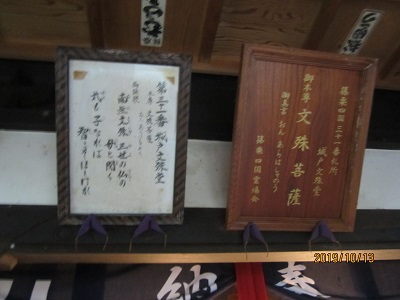 篠栗四国三十一番札所
城戸文殊堂
御本尊 文殊菩薩
御真言 おん あらはしゃのう
篠栗四国霊場会
第三十一番 城戸文殊堂
本尊 文殊菩薩
御詠歌
南無文殊 三世の仏の
母と聞く
我も子なれば
奉
納
2019/10/13